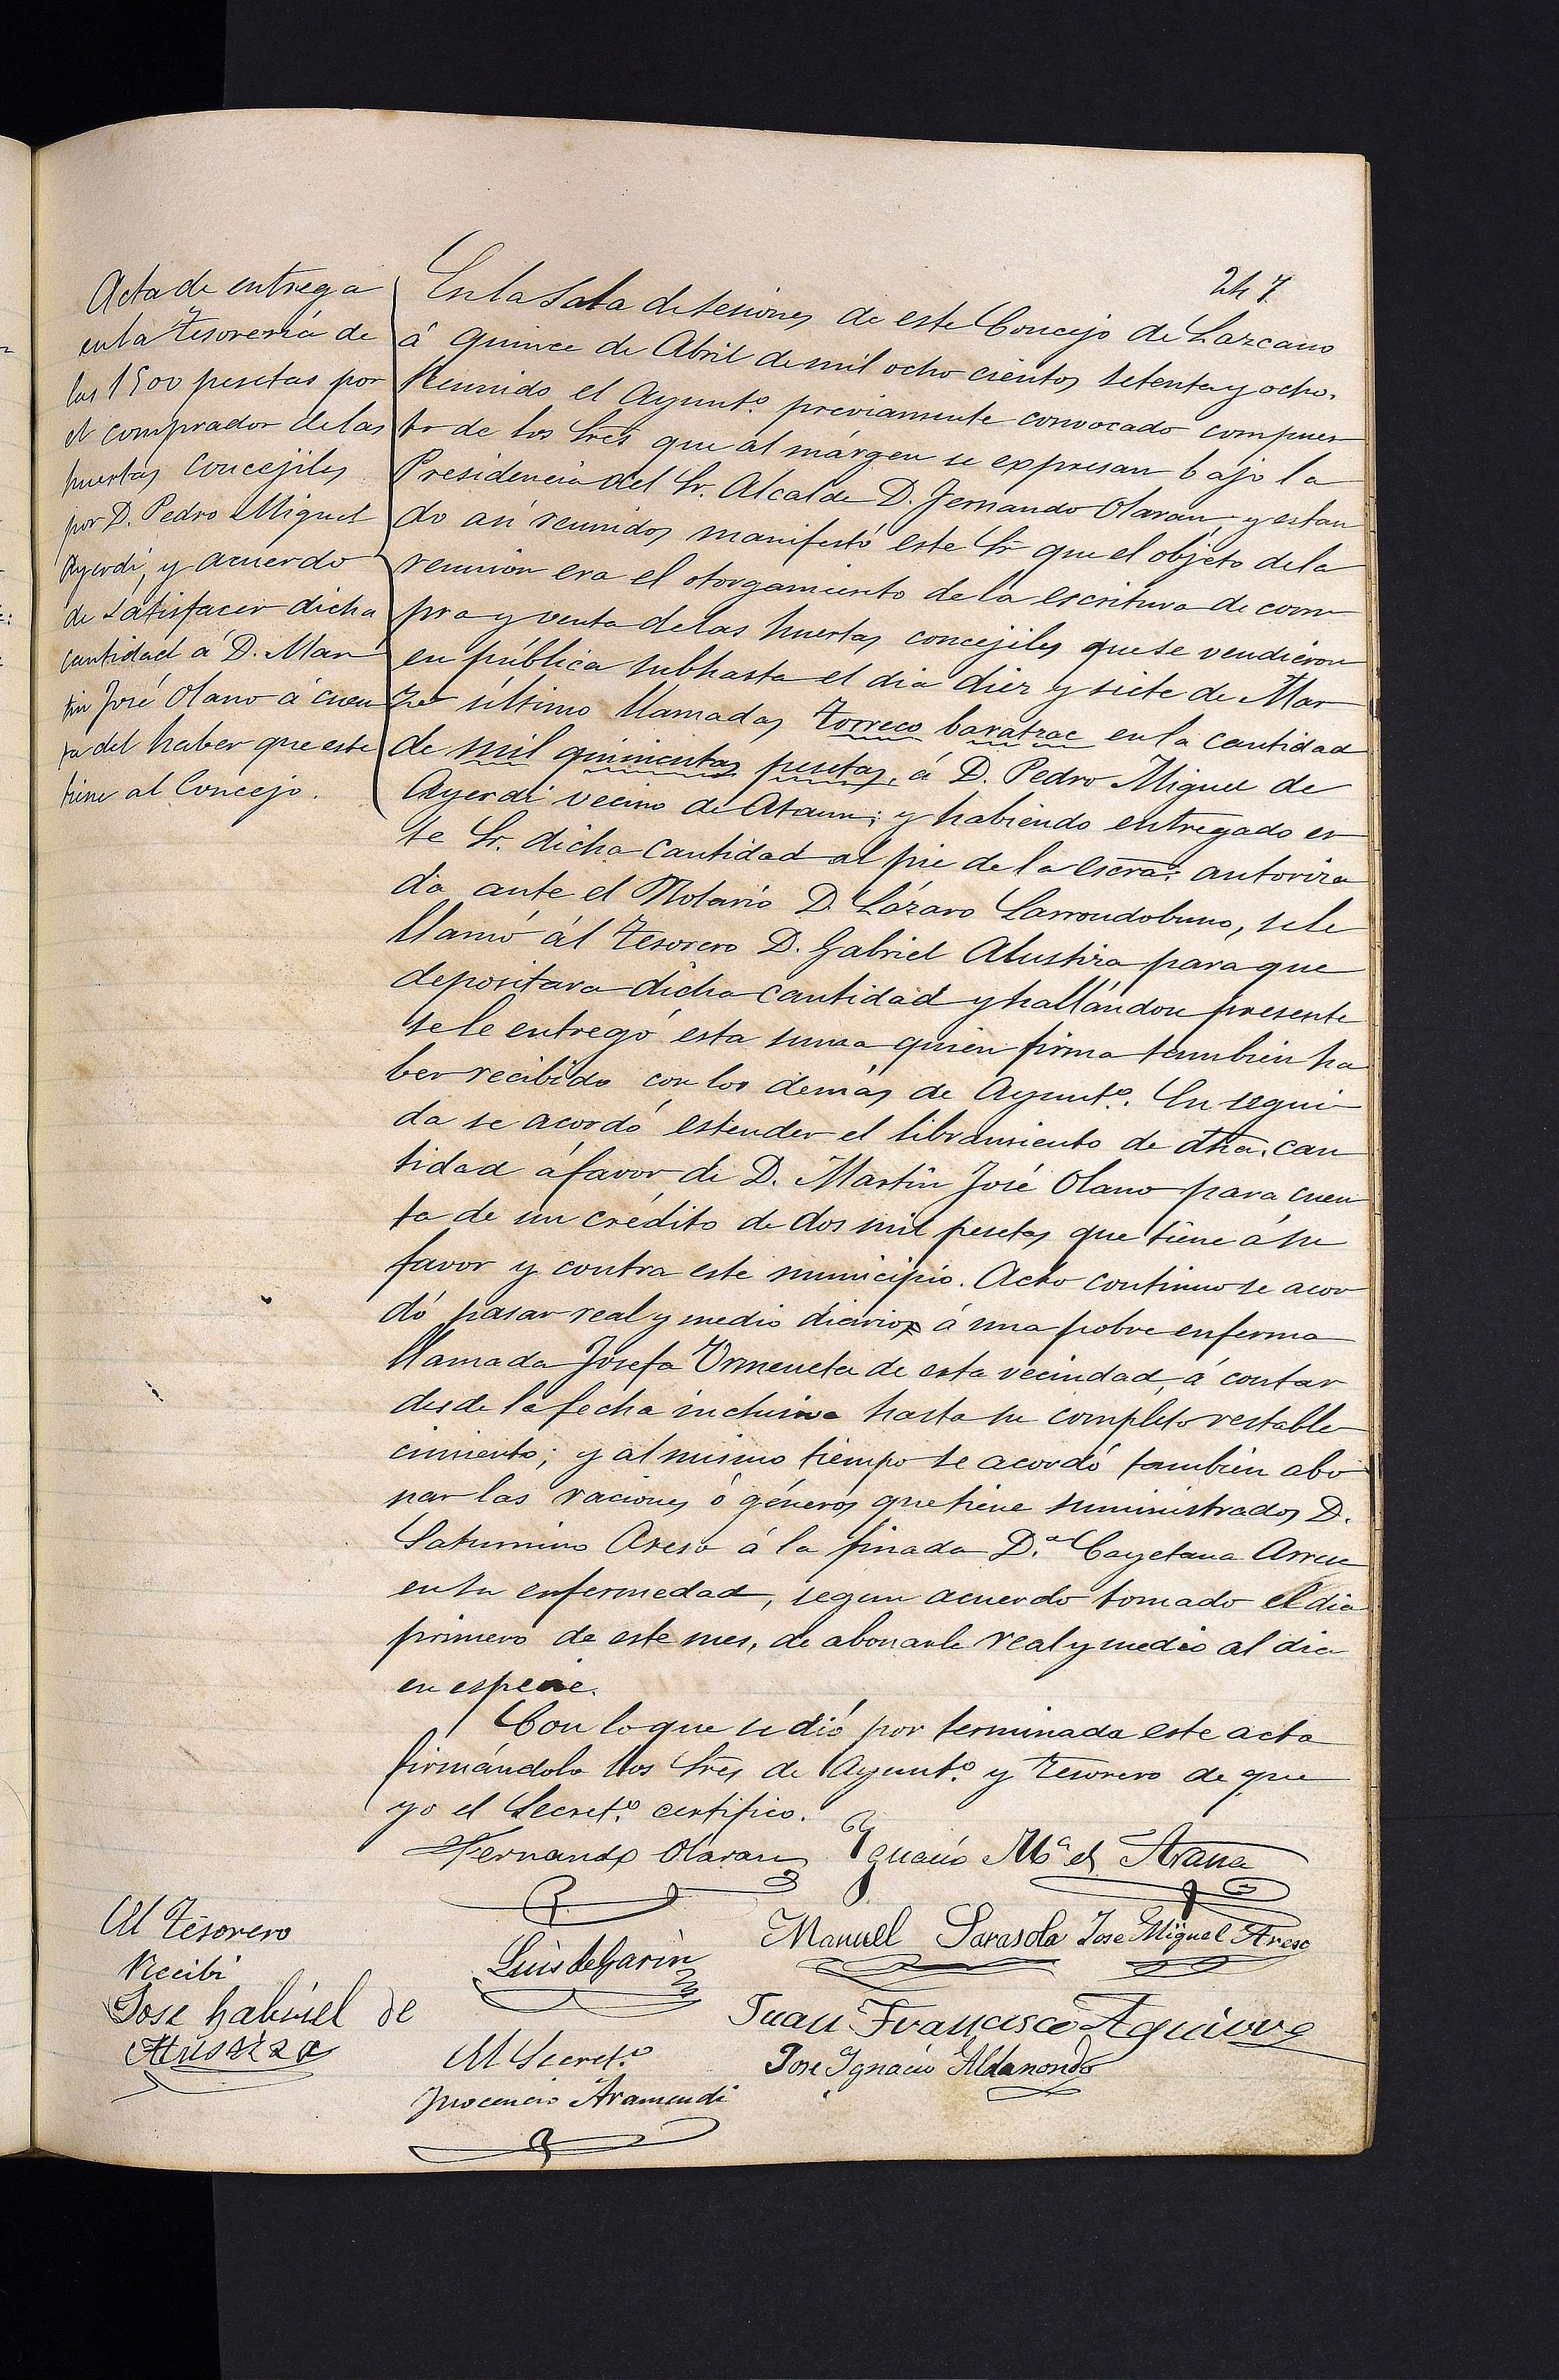 247
Acta de entrega
en la Tesoreria de
las 1500 pesetas por
el comprador de las
huertas concejiles
por D. Pedro Miguel
Ayerdi, y acuerdo
de satisfacer dicha
cantidad á D. Mar
tin José Olano á cuen
ta del haber que este
tiene al Concejo.
En la Sala de sesiones de este Concejo de Lazcano
á quince de Abril de mil ocho cientos setenta y ocho.
Reunido el Ayunt.º previamente convocado compues
to de los Sres que al márgen se expresan bajo la
Presidencia del Sr. Alcalde D. Fernando Olaran, y estan
do asi reunidos manifestó este Sr que el objeto de la
reunion era el otorgamiento de la escritura de com
pra y venta de las huertas concejiles que se vendieron
en pública subhasta el dia diez y siete de Mar
zo último llamadas Torreco baratzac en la cantidad
de mil quinientas pesetas, á D. Pedro Miguel de
Ayerdi vecino de Ataun; y habiendo entregado es
te Sr. dicha cantidad al pie de la escra. autoriza
da ante el Notario D. Lázaro Larrondobuno, se le
llamó ál Tesorero D. Gabriel Alustiza para que
depositara dicha cantidad y hallándose presente
se le entregó esta suma quien firma tambien ha
ber recibido con los demás de Ayunt.º. En segui
da se acordó estender el libramiento de dha. can
tidad á favor de D. Martin José Olano para cuen
ta de un crédito de dos mil pesetas que tiene á su
favor y contra este municipio. Acto continuo se acor
dó pasar real y medio diarios á una pobre enferma
llamada Josefa Urmeneta de esta vecindad, á contar
desde la fecha inclusive hasta su completo restable
cimiento; y al mismo tiempo se acordó tambien abo
nar las raciones ó géneros que tiene suministrados D.
Saturnino Areso á la finada D.ª Cayetana Arrue
en su enfermedad, segun acuerdo tomado el dia
primero de este mes, de abonarle real y medio al dia
en especie.
Con lo que se dió por terminada este acta
firmándola los Sres de Ayunt.º y Tesorero de que
yo el Secret.º certifico.
Fernando Olaran
Ygnacio Mª de Arana
Luis de Garin
Manuel Sarasola
Jose Miguel Areso
Juan Francisco Aguirre
Jose Ygnacio Aldanondo
El Tesorero
Recibi
Jose Gabriel de
Alustiza
El Secret.º
Inocencio Aramendi